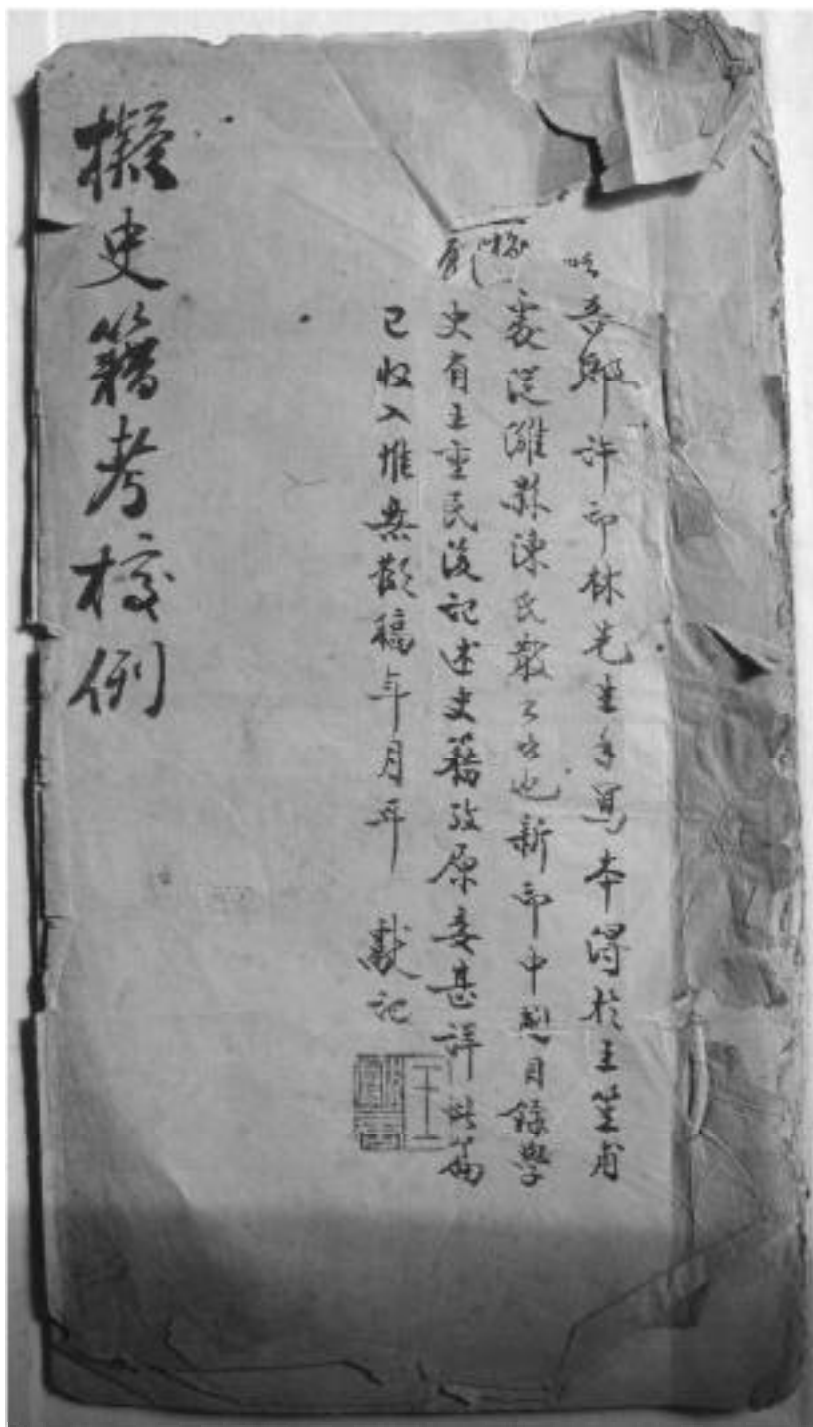 此吾鄉許印林先生手寫本得於王甫
處從濰縣陳氏散出也新印中國目錄學
史有王重民後記述史籍攷原委甚詳此篇
已收入惟無稿年月耳 獻記
擬史籍考校例